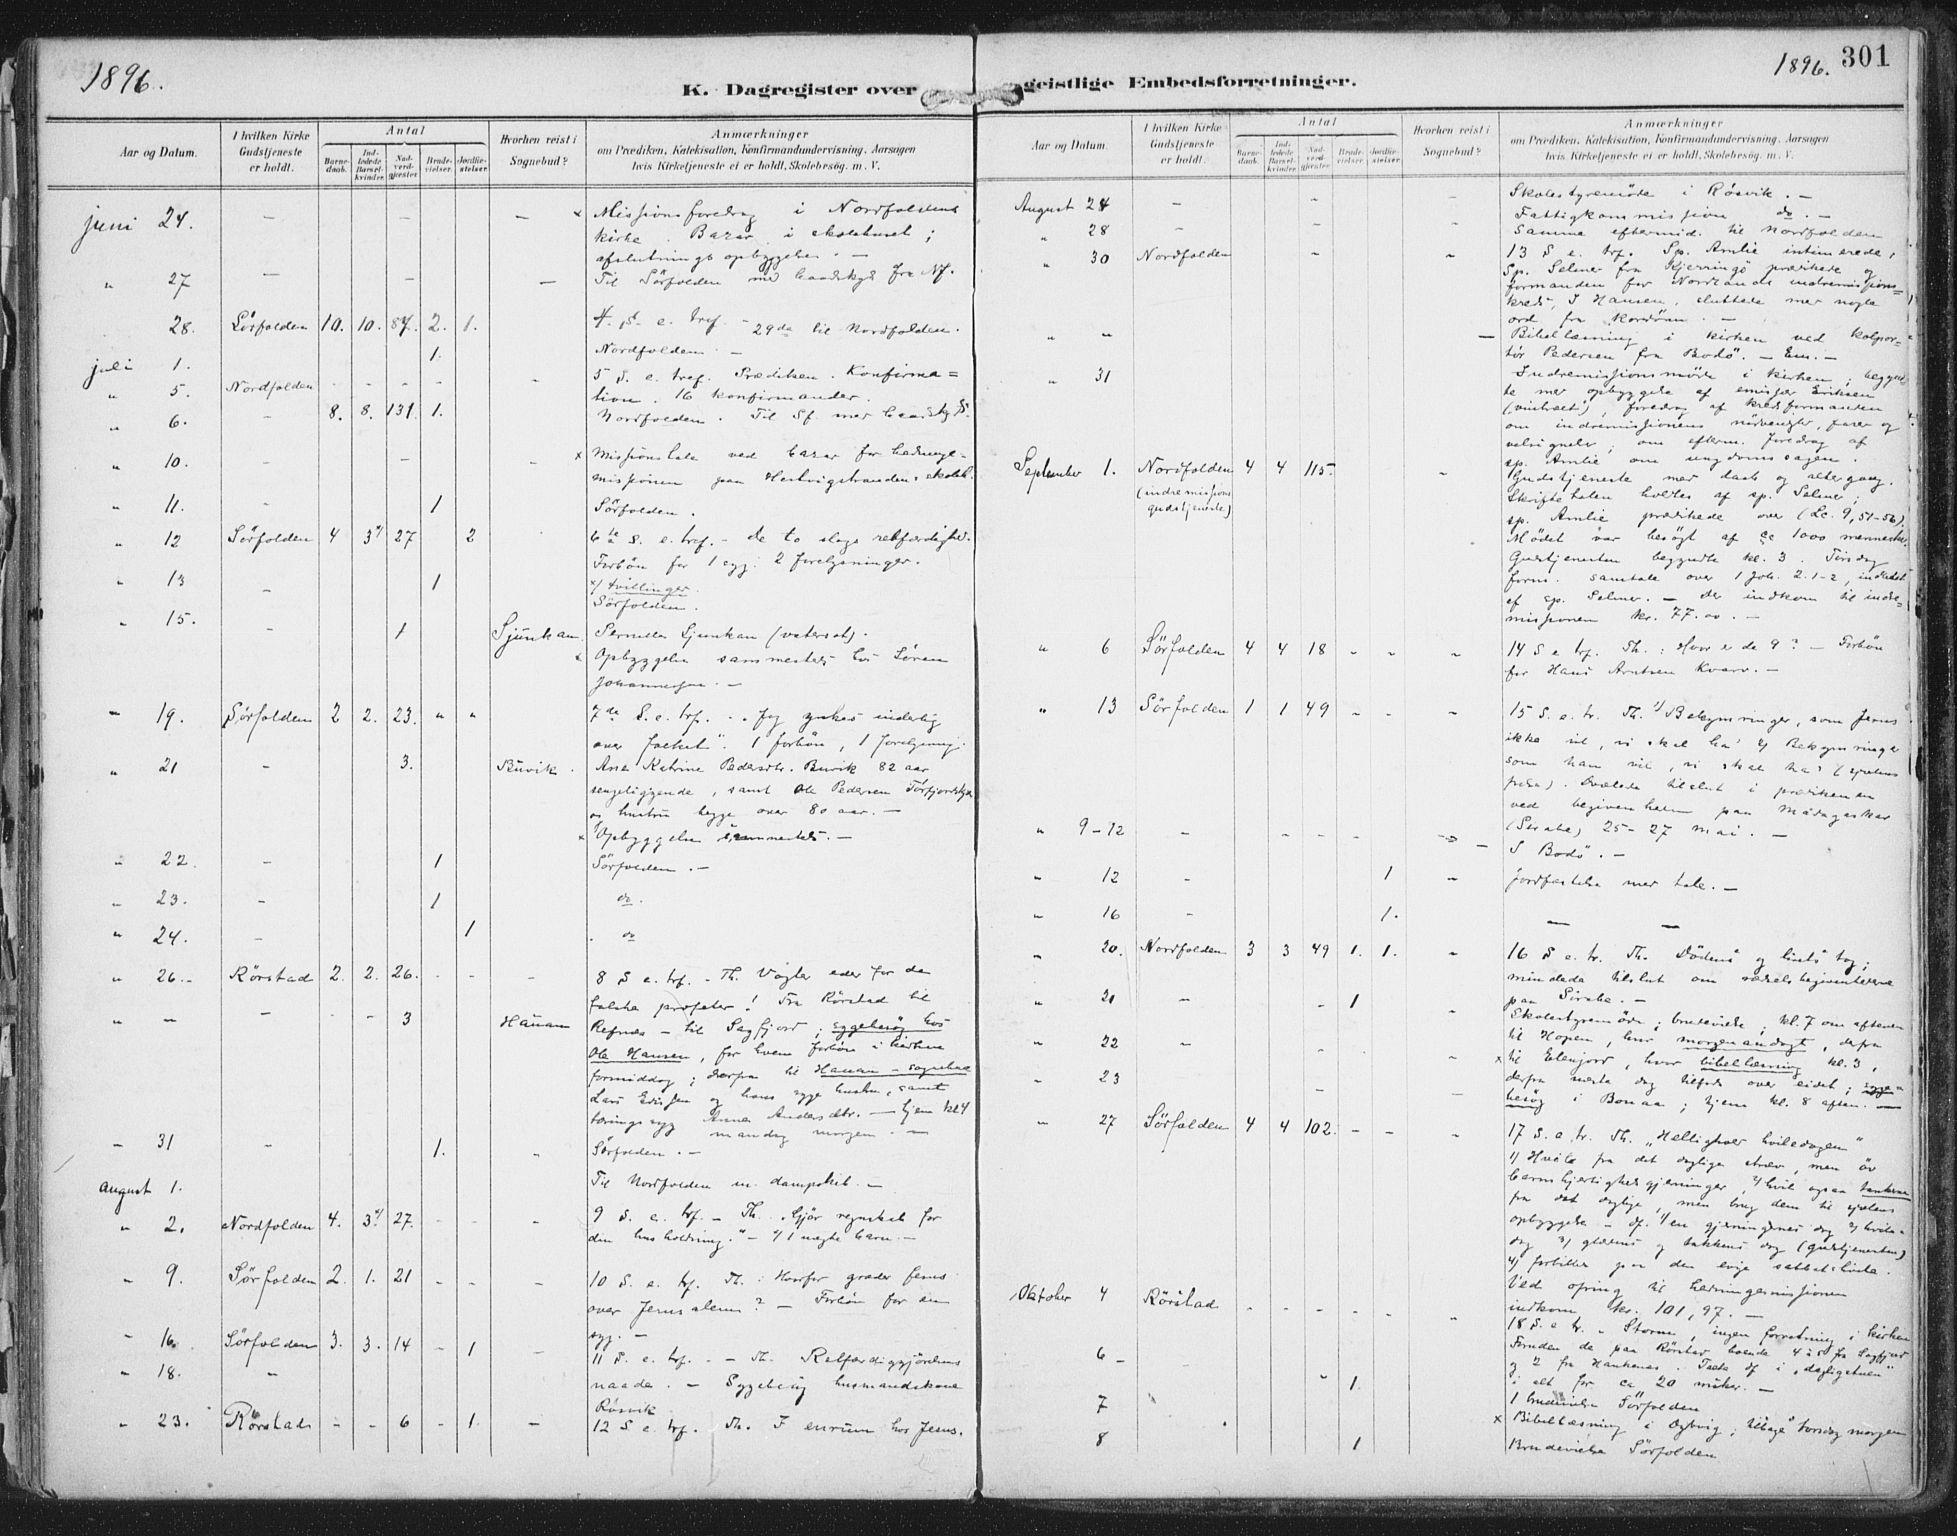 1896.
K. Dagregister over
Aar og Datum.
I hvilken Kirke Gudstjeneste er holdt.
Antal
Barnedaab.
Indledede Barselkvinder.
Nadverdgjester
Brudevielser.
Jordfæstelser.
Hvorhen reist i Sognebud?
Anmærkninger
om Prædiken, Katekisation, Konfirmandundervisning, Aarsagen
hvis Kirketjeneste ei er holdt, Skolebesøg. m. V.
juni 24. - - - x Missionsforedrag i Nordfoldens
kirke. Bazar i skolehuset;
afslutnings opbyggelse. -
" 27 - - - Til Sörfolden med baadskyds fra Nf.
28. Sörfolden 10. 10. 87. 2. 1. 4. S. e. tref. - 29de til Nordfolden.
juli 1. 1. Nordfolden. -
" 5. Nordfolden - - - - 5 S. e. tref. Prædiken. Konfirma=
tion. 16 konfirmander.
" 6. - 8. 8. 131. 1. Nordfolden. Til Sf. med baadskyds.
" 10. - - - x Missionstale ved bazar for hedninge-
missionen paa skoleh.
" 11. - 1 Sörfolden.
" 12 Sörfolden 4 3x) 27 2 6te S. e. tref. - de to slags retfærdighed.
Forbön for 1 syg. 2 forlysninger.
" 13 - 1 x/ tvillinger.
Sörfolden.
" 15. - 1 Sjunkan Pernille Sjunkan (vatersot).
x Opbyggelse sammesteds hos Sören
Johannessen. -
" 19. Sörfolden 2 2. 23. " " 7de S. e. trf. - "Jeg ynkes inderlig
over folket". 1 forbön, 1 forlysning.
" 21 - 3. Buvik. Ane Katrine Pedersdtr. Buvik 82 aar
sengeliggende, samt Ole Pedersen
og hustru begge over 80 aar. -
x Opbyggelse sammesteds. -
" 22. - 1 Sörfolden. -
" 23. - 1 do.
" 24. - 1 do
" 26. - Rörstad 2. 2. 26. - - - 8 S. e. trf. - Th. Vogter eder for de
falske profeter! Fra Rörstad til
" - - - - 3 Hauan Refnæs - til Sagfjord; sygebesög hos
Ole Hansen, for hvem forbön i kirken
formiddag; derfra til Hauan - sognebud
Lars og hans syge hustru, samt
tæringssyg Anna Andersdtr. - hjem kl 4
mandag morgen. -
" 31 - 1. " Sörfolden. -
august 1. Til Nordfolden m. dampskib. -
" 2. Nordfolden 4. 3x) 27. - - - 9 S. e. trf. - Th. "Gjör regnskab for
din husholdning." - x/ 1 uægte barn. -
" 9. Sörfolden 2. 1. 21 - - - 10 S. e. trf. Th.: Hvorfor græder Jesus
over Jerusalem? - Forbön for en
syg. -
" 16. Sörfolden 3. 3. 14 - 1 - 11 S. e. trf. - Th. Retfærdiggjörelsens
" 18. " naade. - Sygebesög husmandskone
Rösvik.
" 23. Rörstad - - 6 - 1. - 12 S. e. trf. Th. I enrum hos Jesus.
geistlige Embedsforretninger.
1896. 301
Aar og Datum.
I hvilken Kirke Gudstjeneste er holdt.
Antal
Barnedaab.
Indledede Barselkvinder.
Nadverdgjester
Brudevielser.
Jordfæstelser.
Hvorhen reist i Sognebud?
Anmærkninger
om Prædiken, Katekisation, Konfirmandundervisning, Aarsagen
hvis Kirketjeneste ei er holdt, Skolebesøg. m. V.
August 24 - - - Skolestyremöde i Rösvik. -
Fattigkommission do. -
" 28 - - - Samme eftermid. til Nordfolden
" 30 Nordfolden - " 13 S. e. trf. Sp. Amlie intimerede,
Sp. Selmer fra Kjerringö prædikede og
formanden for Nordlands indremissions-
kreds, J Hansen, sluttede med nogle
ord fra kordören. -
" " - Bibellæsning i kirken ved kolpor-
tör Pedersen fra Bodö. - Em. -
" 31 Indremissionsmöde i kirken; begynd
te med opbyggelse af emissær Eriksen
(vintræet), foredrag af kredsformanden
om indremissionens nödvendighed, farer og
velsignelse; om efterm. foredrag af
sp. Amlie om ungdomssagen.
September 1. Nordfolden 4 4 115. " Gudstjeneste med daab og altergang.
(indremissions gudstjeneste) Skriftetalen holdtes af sp. Selmer;
sp. Amlie prædikede over (Lc. 9, 51-56).
Mödet var besögt af ca 1000 mennesker.
Gudstjenesten begyndte kl. 3. Tirsdag
form. samtale over 1 Joh. 2. 1-2, indledet
af sp. Selmer. - Der indkom til indre-
missionen kr. 77.00. -
" 6 Sörfolden 4 4 18 - - " 14 S. e. trf. Th.: Hvor er de 9? - Forbön
for Hans Arntsen Kvarv. -
" 13 Sörfolden 1 1 49 - - " 15 S. e. tr. Th. 1/ Bekymringer, som Jesus
ikke vil, vi skal ha' 2/ Bekymringer
som han vil, vi skal ha' (sjælens
frelse). Dvælede tilslut i prædikenen
ved begivenheden paa Madagaskar
(Sirabe) 25-27 mai. -
" 9-12 - - - - - I Bodö. -
" 12 - 1 " Jordfæstelse med tale. -
" 16 - 1. - -
" 20. Nordfolden 3 3 49 1. 1. " 16 S. e. tr. Th. Dödens og livets tog;
mindede tilslut om rædselsbegivenhederne
paa Sirabe. -
" 21 - - 1 " Skolestyremöde; brudevielse; kl. 7 om aftenen
" 22 - - til Hopen, hvor morgenandagt, derfra
" x til Elenjord, hvor bibellæsning kl. 3,
" 23 - derfra næste dag tilfods over eidet; syge-
- besög i Bonaa; hjem kl. 8 aften. -
" 27 Sörfolden 4 4 102. - - " 17 S. e. tr. Th. "Helligholder hviledagen"
1/ Hvile fra det daglige stræv, men öv
barmhjertighedsgjerninger, 2/ hvil ogsaa tankerne
fra det daglige, men brug dem til sjælens
opbyggelse - Df. 1/ en gjerningernes dag 2/ hvile-
dag 3/ glædens og takkens dag (gudstjenesten)
4/ forbillede paa den evige sabbatshvile.
Ved ofring til hedningemissionen
indkom kr. 101,97. -
Oktober 4 Rörstad - - - - - " 18 S. e. tr. - Storm, ingen forretning i kirken
Foruden de paa Rörstad boende 4 a 5 fra Sagfjord
6 - og 2 fra Talte df. i "dagligstuen"
" 1. i alt for ca 20 msker. -
7 1 brudevielse Sörfolden
x Bibellæsning i ; tilbage torsdag morgen
8 1 Brudevielse Sörfolden